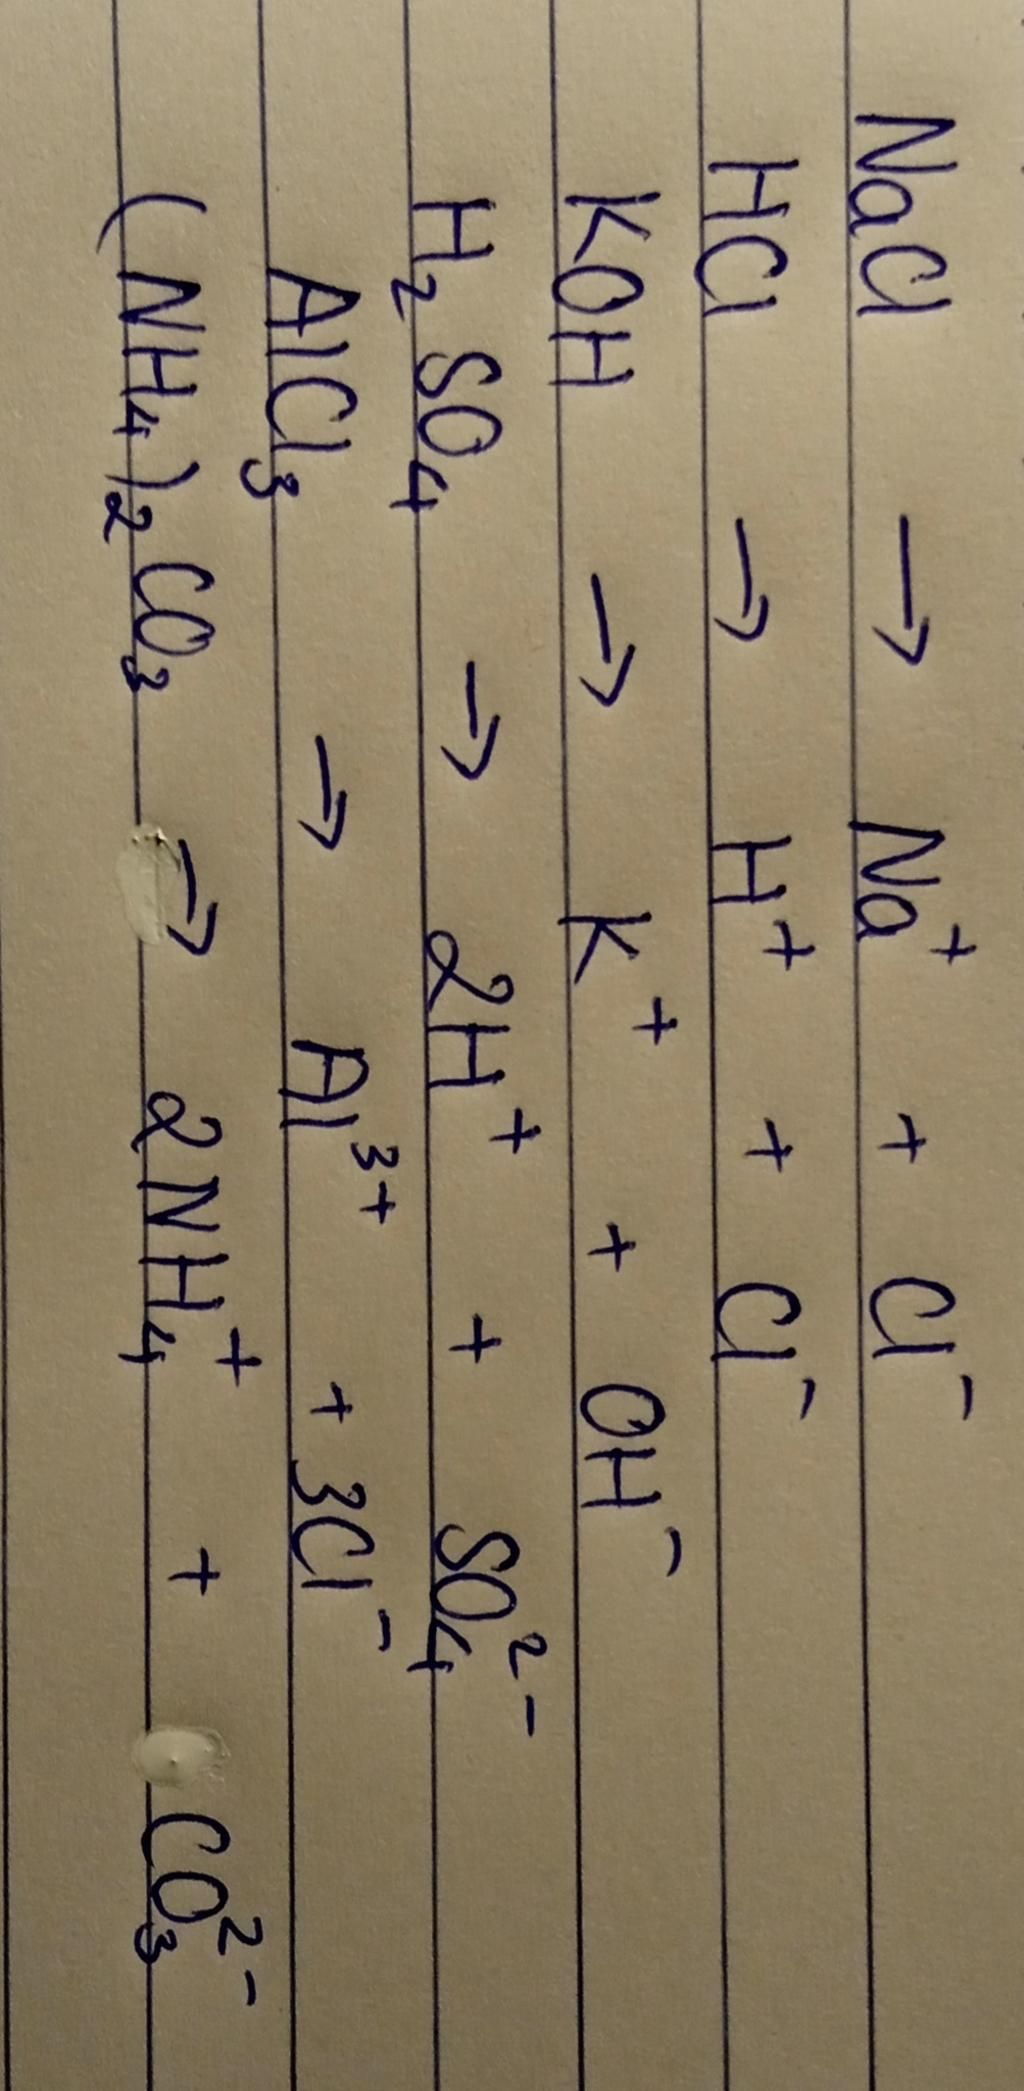 NaCl → Na⁺ + Cl⁻
HCl → H⁺ + Cl⁻
KOH → K⁺ + OH⁻
H₂SO₄ → 2H⁺ + SO₄²⁻
AlCl₃ → Al³⁺ + 3Cl⁻
(NH₄)₂CO₃ → 2NH₄⁺ + CO₃²⁻